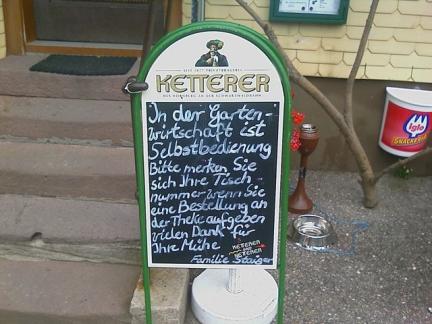 SEIT 1877 PRIVATBRAUEREI
KETTERER
AUS HORNBERG AN DER SCHWARZWALDBAHN
In der Garten-
wirtschaft ist
Selbstbedienung
Bitte merken Sie
sich Ihre Tisch-
nummer wenn Sie
eine Bestellung an
der Theke aufgeben
vielen Dank für
Ihre Mühe
KETTERER
KETTERER
Familie Staiger
Iglo